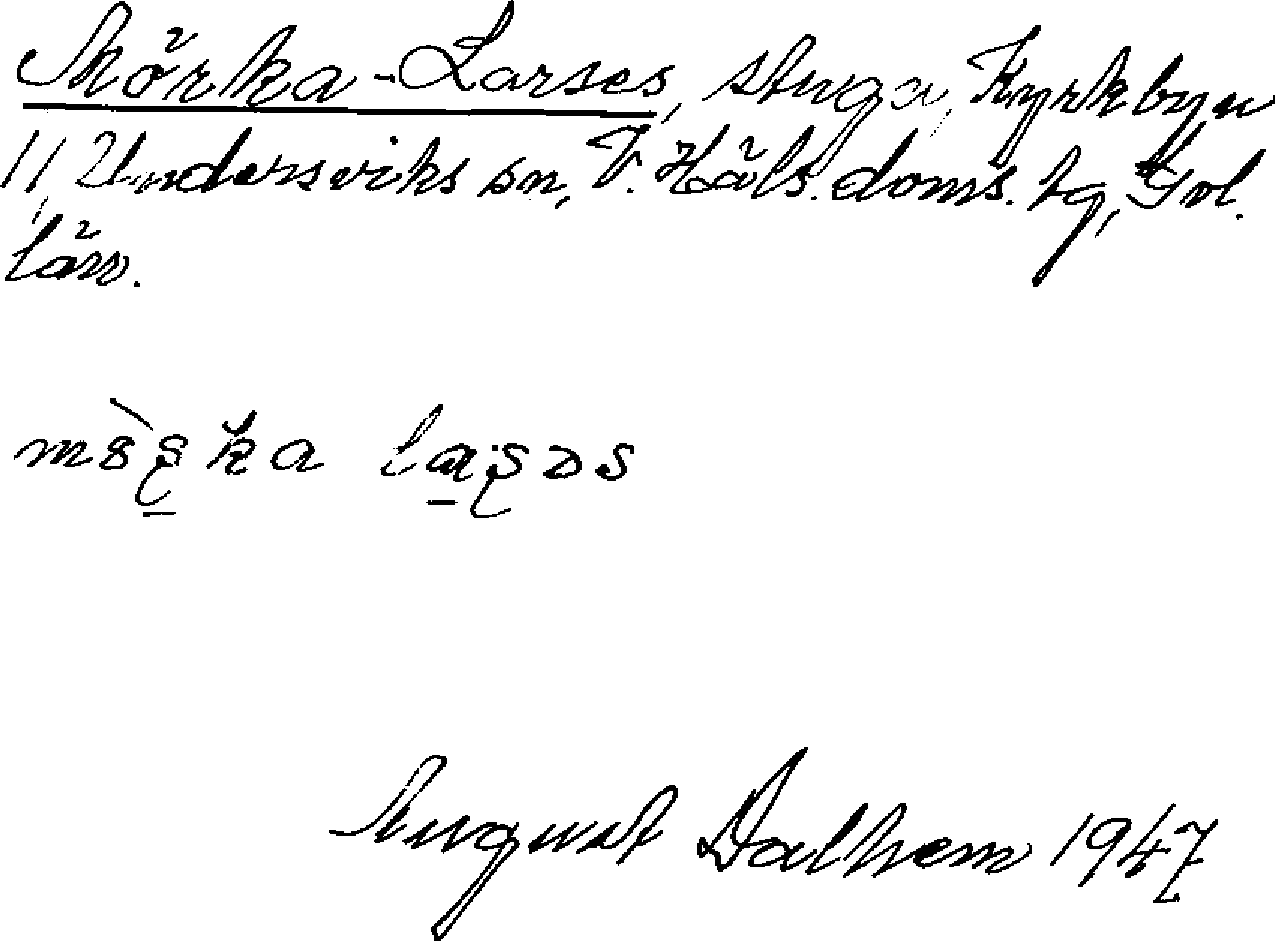 Mörka-Larses, stuga, Kyrkbyn
11, Undersviks sn, V. Häls. doms. tg, Gvl.
län.
mö̀ʂka laʂəs
August Dalhem 1947